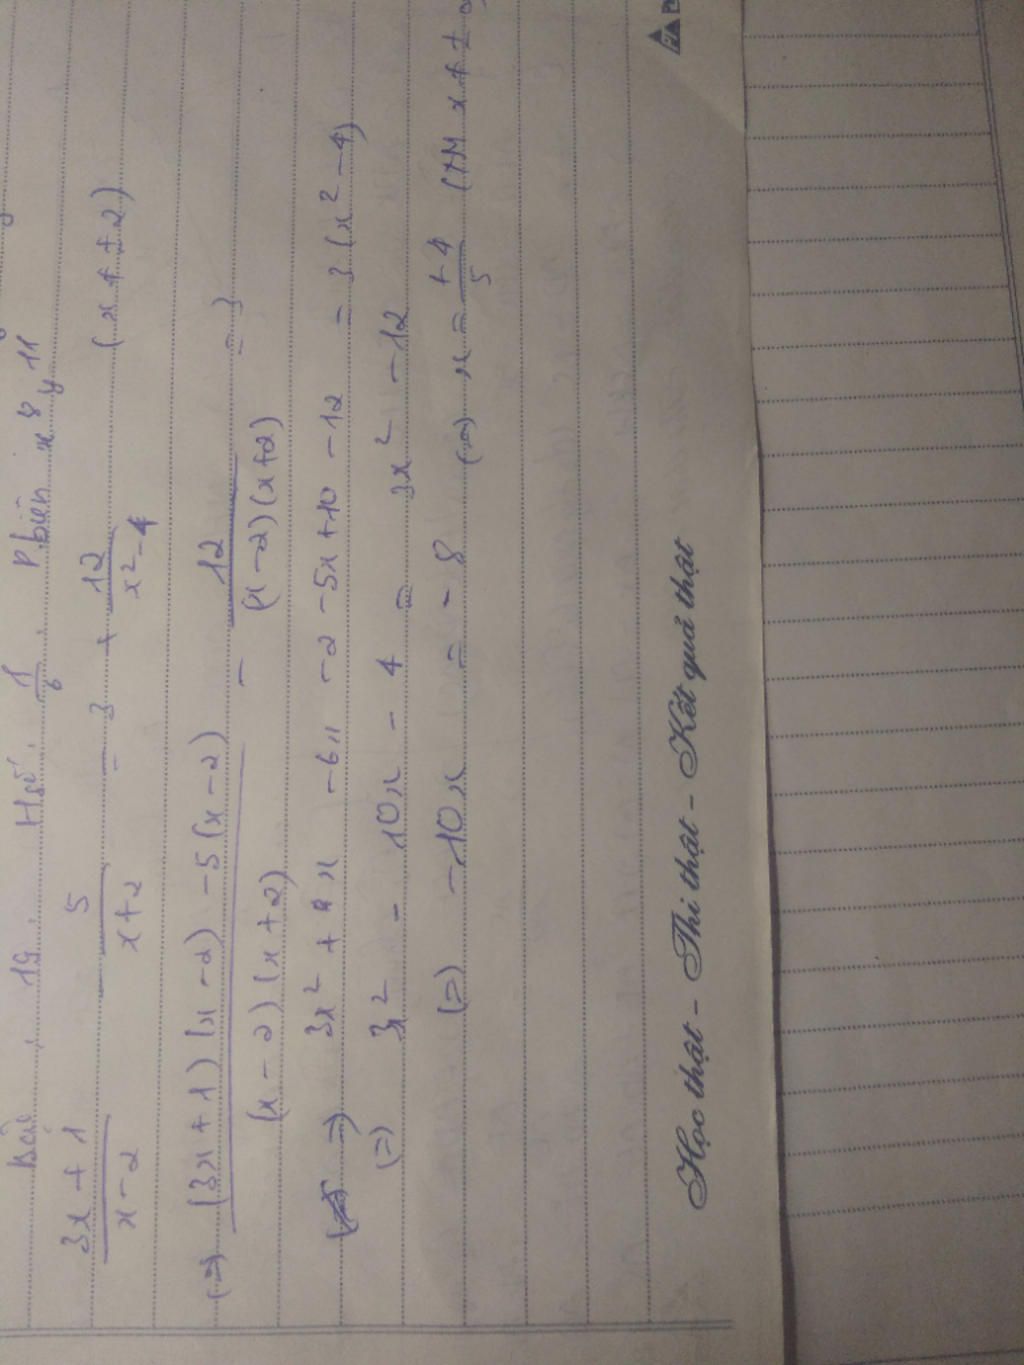 Bậc : 19 . Hsố : 1/6 . P.biến x⁸ y¹¹
(3x + 1)/(x - 2) - 5/(x + 2) = 3 + 12/(x² - 4) (x ≠ ± 2)
(=) ((3x + 1)(x - 2) - 5(x - 2))/((x - 2)(x + 2)) - 12/((x - 2)(x + 2)) = 3
=) 3x² + x - 6x - 2 - 5x + 10 - 12 = 3(x² - 4)
(=) 3x² - 10x - 4 = 3x² - 12
(=) -10x = -8 (=) x = +4/5 (TM x ≠ ±
Học thật - Thi thật - Kết quả thật